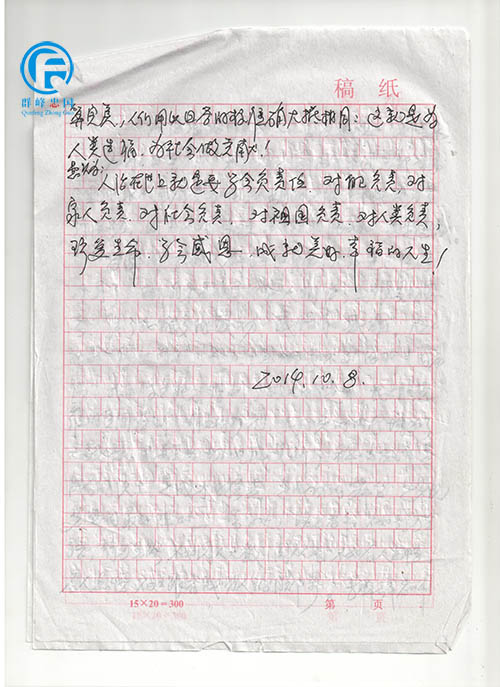 稿 纸
群峰忠国
Qunfeng Zhong Guo
算息差，人们用此日历时校准确大概相同：这就是为
人类造福，为社会做贡献！
人活在世上就是要学会负责任，对自己负责，对
家人负责，对社会负责，对祖国负责，对人类负责，
珍爱生命，学会感恩，成就美好、幸福的人生！
2014.10.8.
15×20=300
第 页